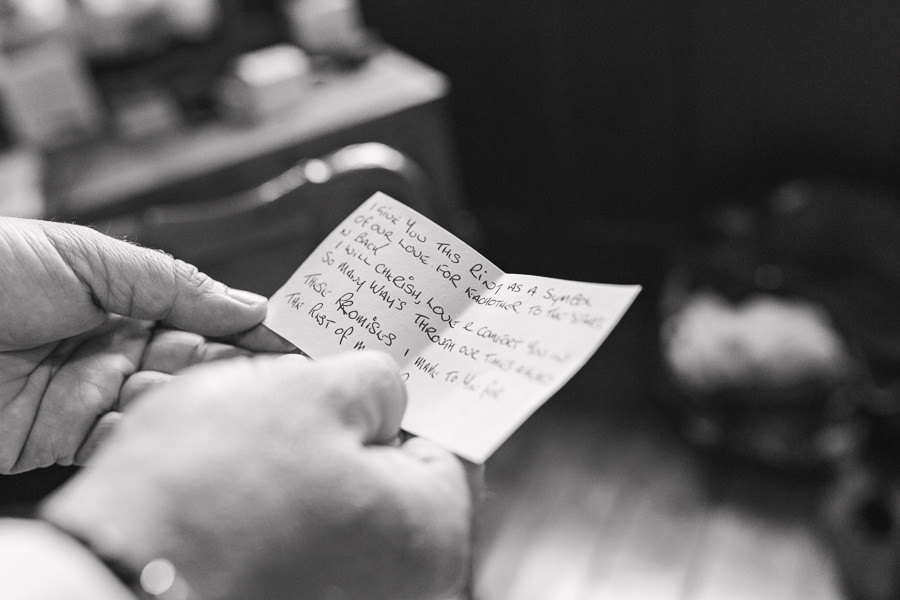 I GIVE YOU THIS RING AS A SYMBOL
OF OUR LOVE. FOR EACHOTHER TO THE STARS
N BACK
I WILL CHERISH, LOVE & COMFORT YOU IN
SO MANY WAY'S THROUGH OUR TIMES
THESE PROMISES I MAKE TO YOU FOR
THE REST OF M